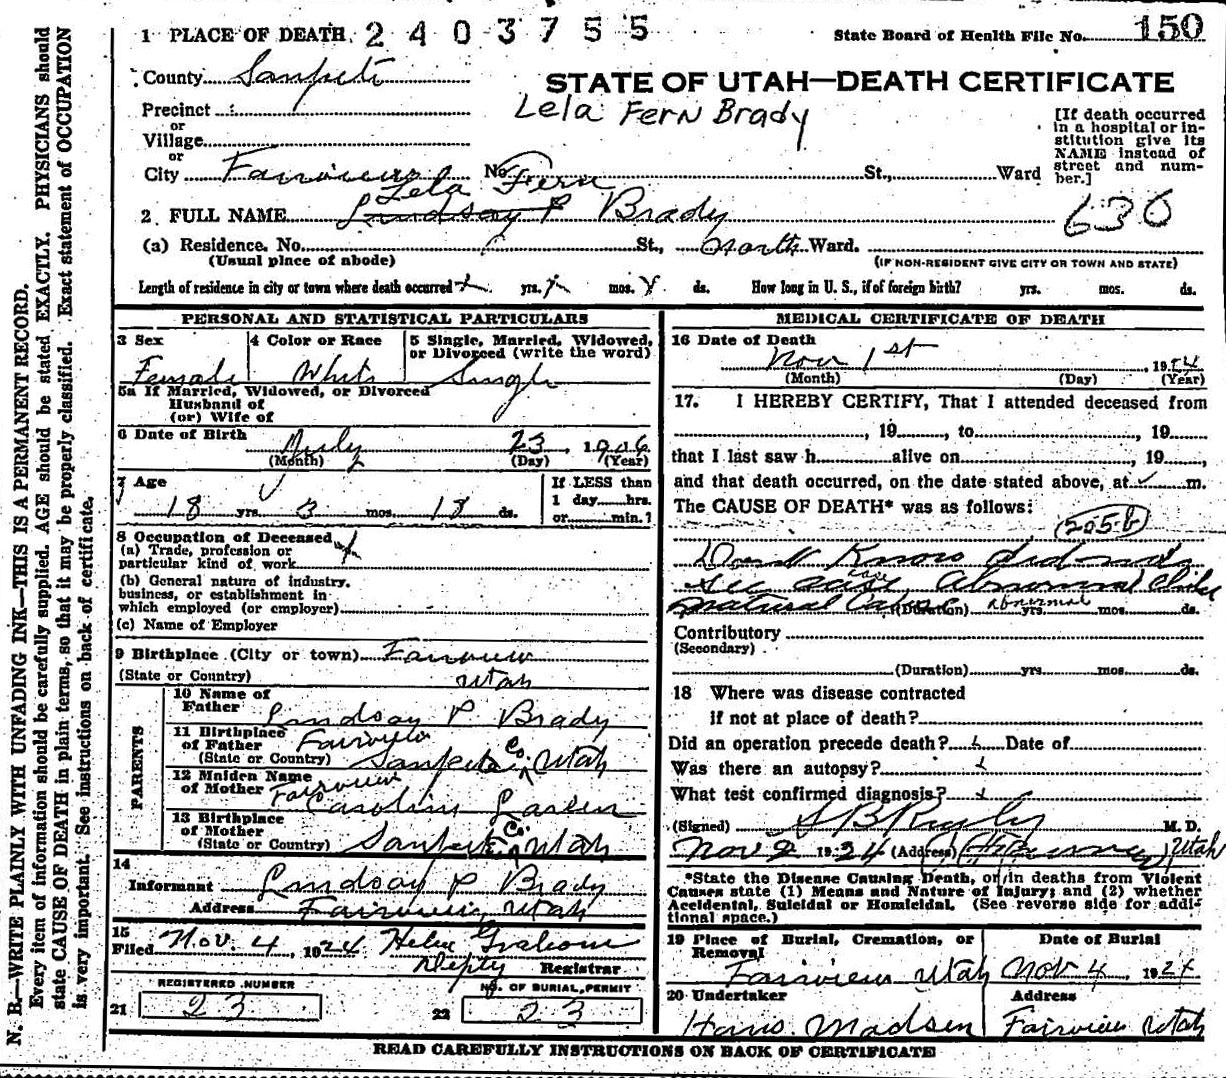 1 PLACE OF DEATH 2403755 State Board of Health File No. 150
County Sanpete
STATE OF UTAH—DEATH CERTIFICATE
Precinct
Lela Fern Brady
or
Village
or
City Fairview No. St., Ward
[If death occurred
in a hospital or in-
stitution give its
NAME instead of
street and num-
ber.]
Lela Fern
2 FULL NAME Lindsay P Brady
630
(a) Residence. No. St., North Ward.
(Usual place of abode) (IF NON-RESIDENT GIVE CITY OR TOWN AND STATE)
Length of residence in city or town where death occurred yrs. mos. ds. How long in U. S., if of foreign birth? yrs. mos. ds.
PERSONAL AND STATISTICAL PARTICULARS
3 Sex 4 Color or Race 5 Single, Married, Widowed,
or Divorced (write the word)
Female White Single
5a If Married, Widowed, or Divorced
Husband of
(or) Wife of
6 Date of Birth July 23, 1906
(Month) (Day) (Year)
7 Age
18 yrs. 3 mos. 18 ds.
If LESS than
1 day hrs.
or min.?
8 Occupation of Deceased
(a) Trade, profession or
particular kind of work
(b) General nature of industry,
business, or establishment in
which employed (or employer)
(c) Name of Employer
9 Birthplace (City or town) Fairview
(State or Country) Utah
PARENTS
10 Name of
Father Lindsay P Brady
11 Birthplace
of Father Fairview
(State or Country) Sanpete Co. Utah
12 Maiden Name
of Mother Fairview
Caroline Larsen
13 Birthplace
of Mother
(State or Country) Sanpete Co. Utah
14
Informant Lindsay P Brady
Address Fairview, Utah
15
Filed Nov. 4, 1924 Helen Graham
Depty Registrar
REGISTERED NUMBER NO. OF BURIAL PERMIT
21 23 22 23
MEDICAL CERTIFICATE OF DEATH
16 Date of Death
Nov 1st, 1924
(Month) (Day) (Year)
17. I HEREBY CERTIFY, That I attended deceased from
, 19 , to , 19
that I last saw h alive on , 19 ,
and that death occurred, on the date stated above, at m.
The CAUSE OF DEATH* was as follows:
205-b
Don't Know did not
see case case Abnormal Child
Natural Cause (Duration) abnormal yrs. mos. ds.
Contributory
(Secondary)
(Duration) yrs. mos. ds.
18 Where was disease contracted
if not at place of death?
Did an operation precede death? Date of
Was there an autopsy?
What test confirmed diagnosis?
(Signed) M. D.
Nov 2 1924 (Address) Utah
*State the Disease Causing Death, or in deaths from Violent
Causes state (1) Means and Nature of Injury; and (2) whether
Accidental, Suicidal or Homicidal. (See reverse side for addi-
tional space.)
19 Place of Burial, Cremation, or
Removal
Date of Burial
Fairview Utah Nov 4, 1924
20 Undertaker Address
Hans Madsen Fairview Utah
READ CAREFULLY INSTRUCTIONS ON BACK OF CERTIFICATE
N. B.—WRITE PLAINLY WITH UNFADING INK—THIS IS A PERMANENT RECORD.
Every item of information should be carefully supplied. AGE should be stated EXACTLY. PHYSICIANS should
state CAUSE OF DEATH in plain terms, so that it may be properly classified. Exact statement of OCCUPATION
is very important. See instructions on back of certificate.